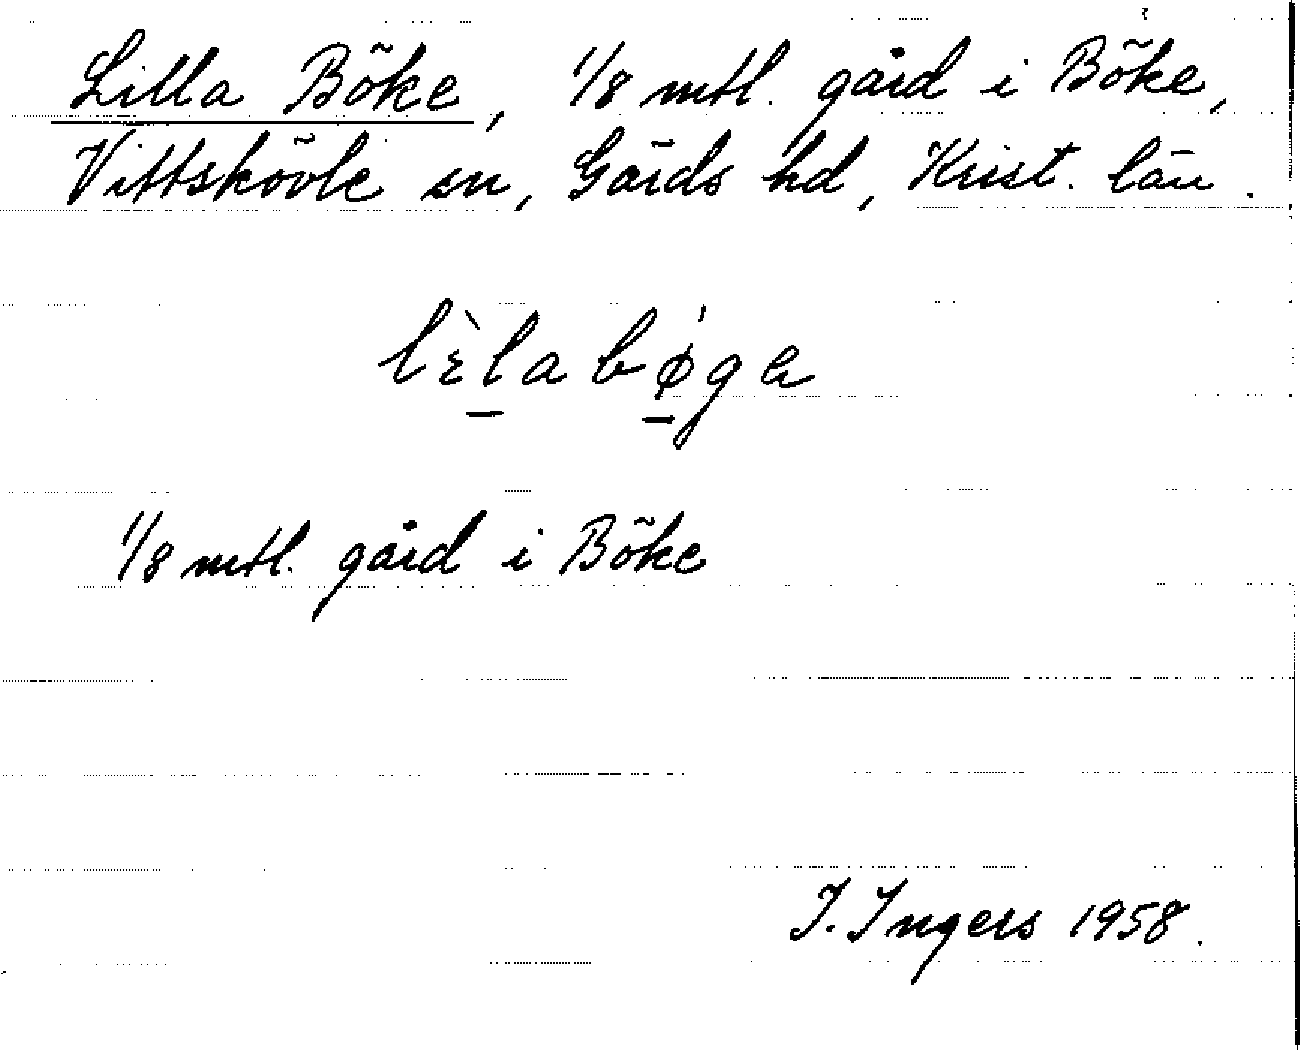 Lilla Böke, 1/8 mtl. gård i Böke,
Vittskövle sn, Gärds hd, Krist. län.
lὲla bø̍gɐ
1/8 mtl. gård i Böke
I. Ingers 1958.